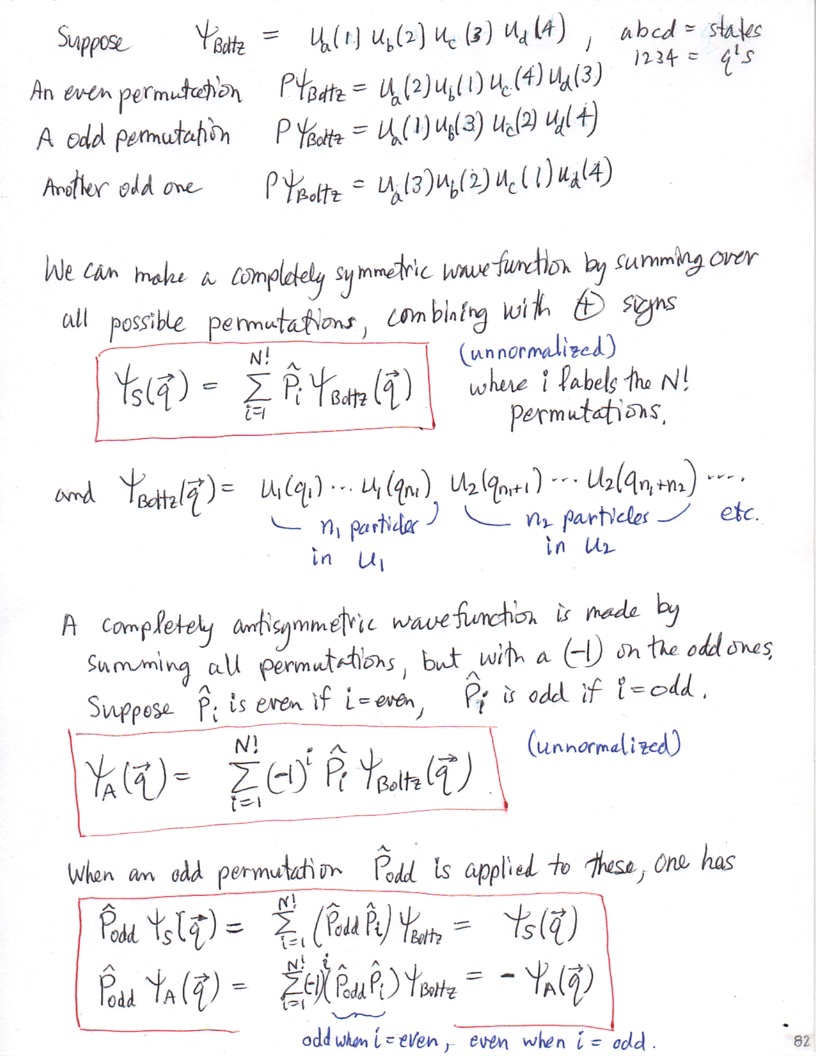 Suppose Ψ_Boltz = u_a(1) u_b(2) u_c(3) u_d(4), abcd = states
1234 = q's
An even permutation PΨ_Boltz = u_a(2) u_b(1) u_c(4) u_d(3)
A odd permutation PΨ_Boltz = u_a(1) u_b(3) u_c(2) u_d(4)
Another odd one PΨ_Boltz = u_a(3) u_b(2) u_c(1) u_d(4)
We can make a completely symmetric wavefunction by summing over
all possible permutations, combining with ⊕ signs
Ψ_S(q⃗) = Σ_{i=1}^{N!} P̂_i Ψ_Boltz(q⃗) (unnormalized)
where i labels the N!
permutations.
and Ψ_Boltz(q⃗) = u_1(q_1) ... u_1(q_{n_1}) u_2(q_{n_1+1}) ... u_2(q_{n_1+n_2}) ....
n_1 particles n_2 particles etc.
in u_1 in u_2
A completely antisymmetric wavefunction is made by
summing all permutations, but with a (-1) on the odd ones.
Suppose P̂_i is even if i=even, P̂_i is odd if i=odd.
Ψ_A(q⃗) = Σ_{i=1}^{N!} (-1)^i P̂_i Ψ_Boltz(q⃗) (unnormalized)
When an odd permutation P̂_odd is applied to these, one has
P̂_odd Ψ_S(q⃗) = Σ_{i=1}^{N!} (P̂_odd P̂_i) Ψ_Boltz = Ψ_S(q⃗)
P̂_odd Ψ_A(q⃗) = Σ_{i=1}^{N!} (-1)^i (P̂_odd P̂_i) Ψ_Boltz = - Ψ_A(q⃗)
odd when i=even, even when i=odd.
82